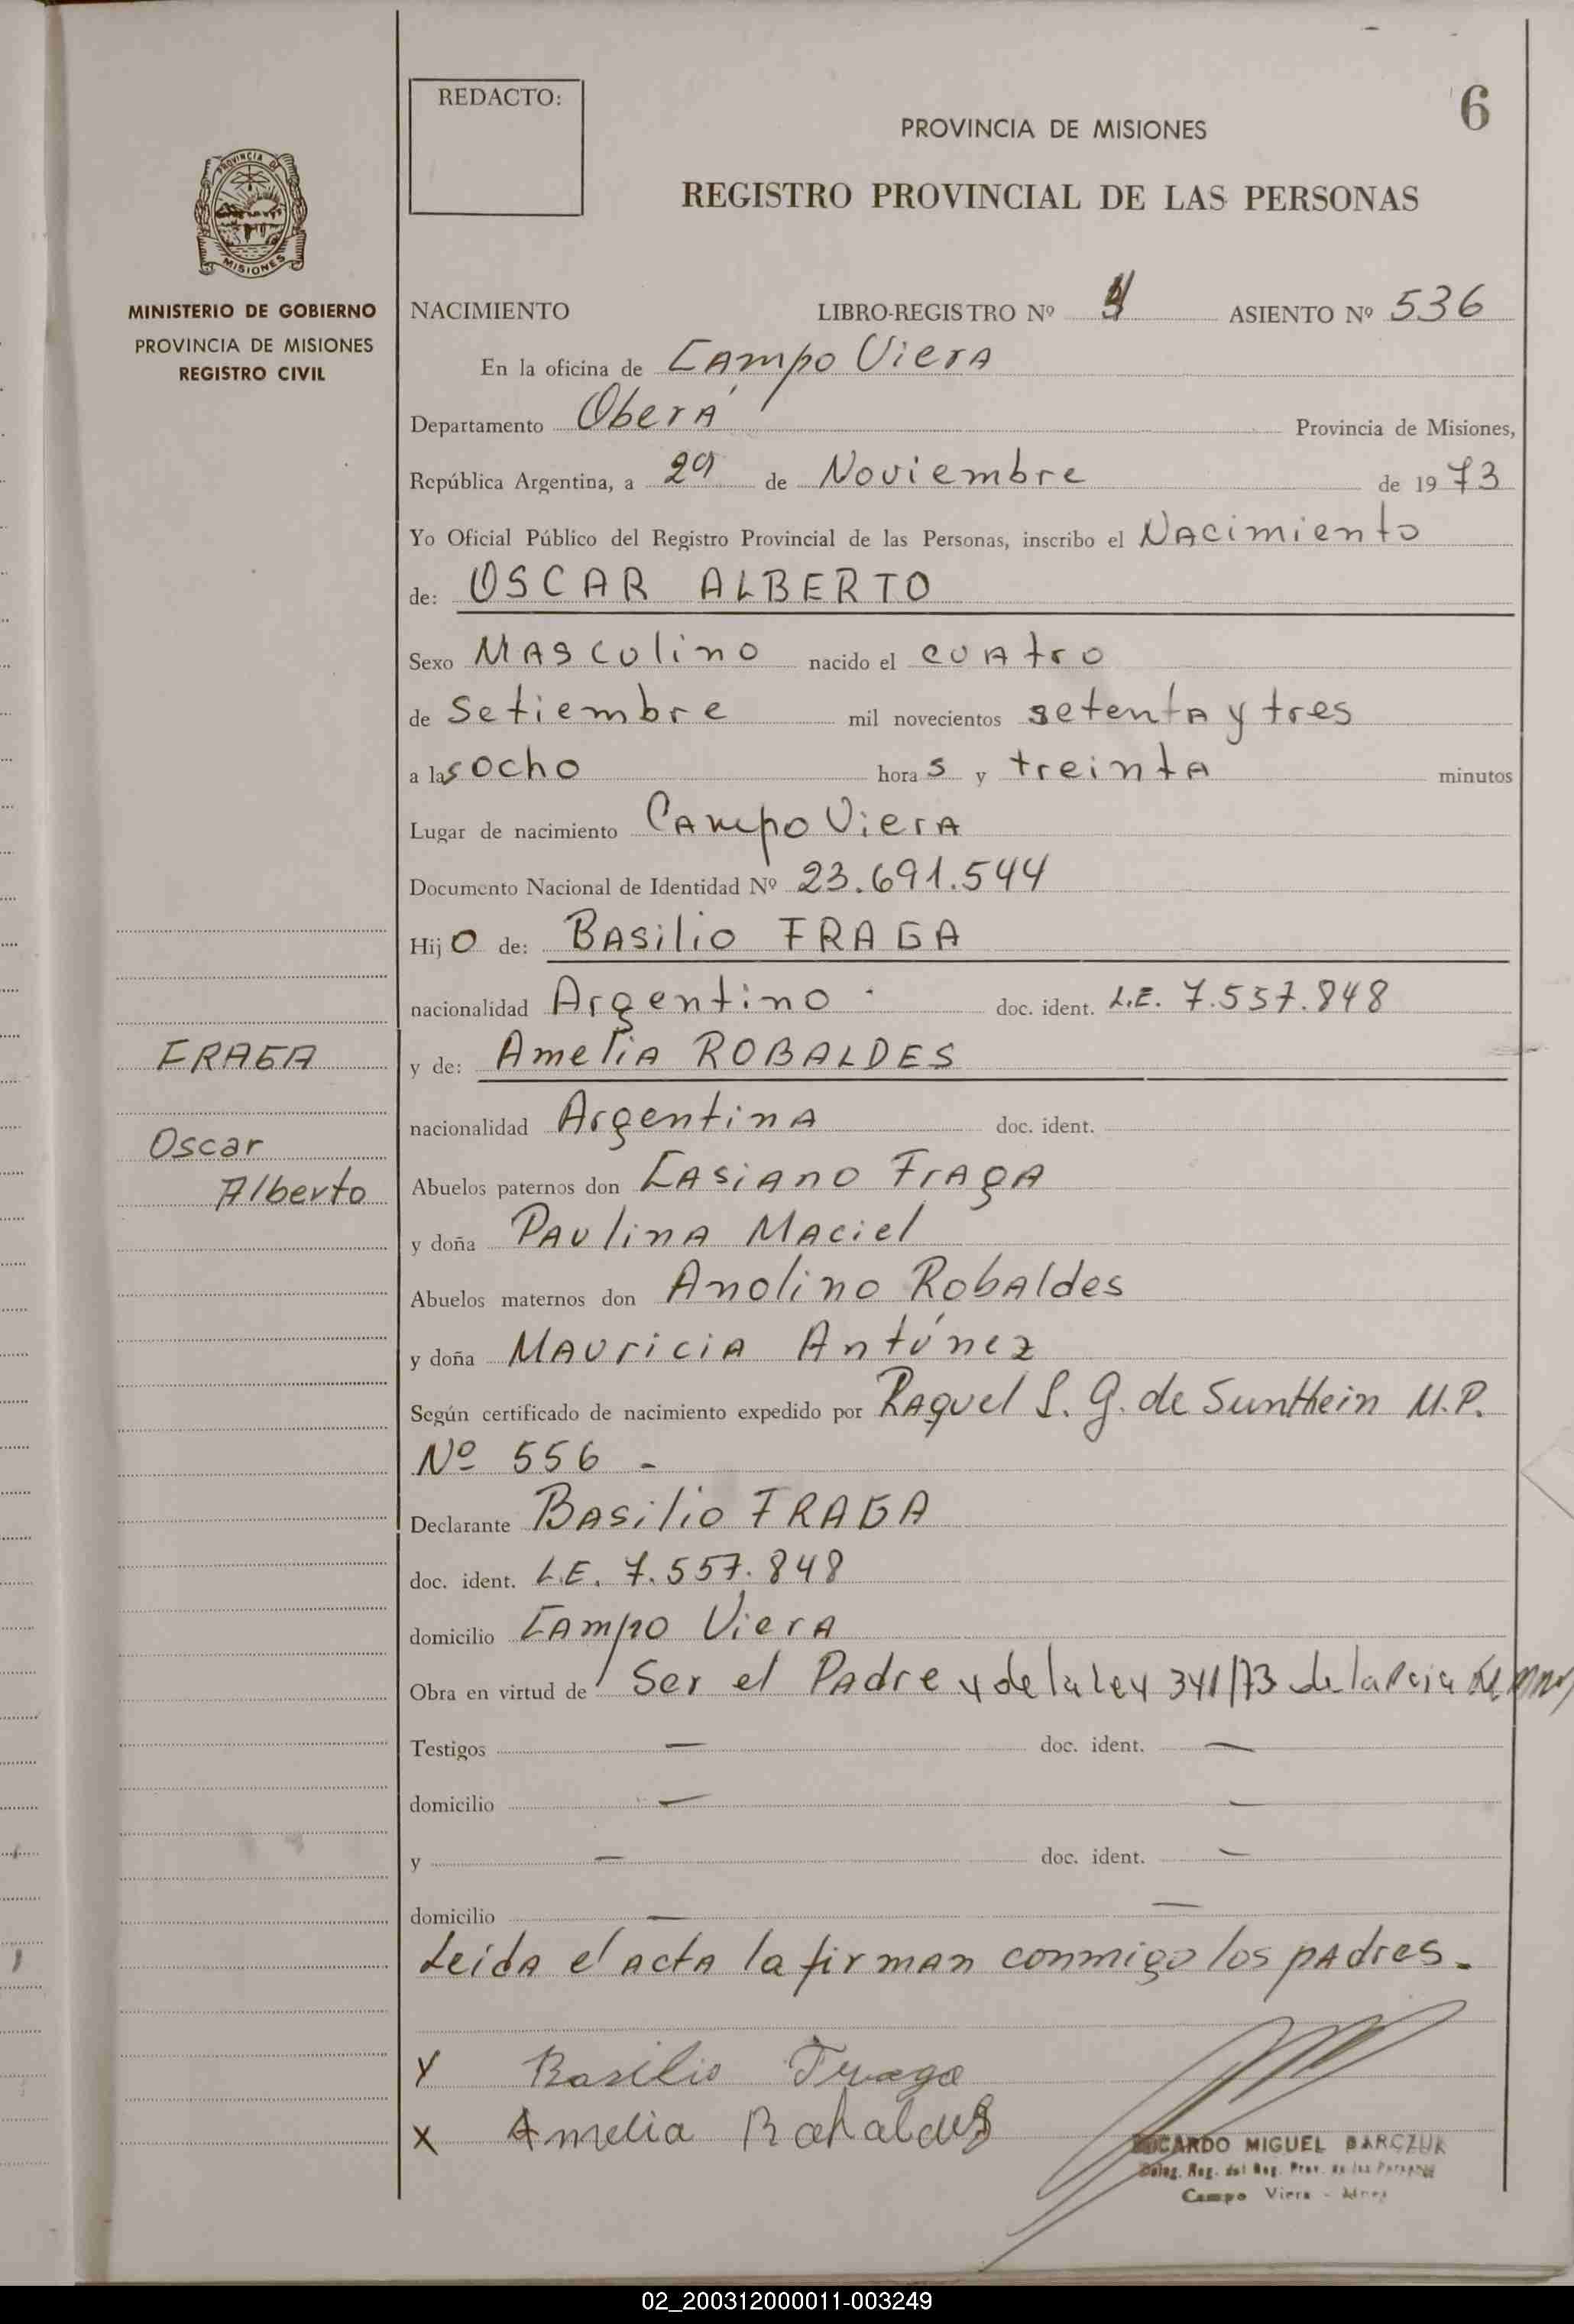 REDACTO:
6
PROVINCIA DE MISIONES
REGISTRO PROVINCIAL DE LAS PERSONAS
PROVINCIA DE
MISIONES
MINISTERIO DE GOBIERNO
PROVINCIA DE MISIONES
REGISTRO CIVIL
NACIMIENTO LIBRO-REGISTRO Nº ASIENTO Nº 536
En la oficina de CAmpo VierA
Departamento OberÁ Provincia de Misiones,
República Argentina, a 29 de Noviembre de 1973
Yo Oficial Público del Registro Provincial de las Personas, inscribo el NAcimiento
de: OSCAR ALBERTO
Sexo MAsculino nacido el cuAtro
de Setiembre mil novecientos setentA y tres
a las ocho horas y treintA minutos
Lugar de nacimiento CAmpo VierA
Documento Nacional de Identidad Nº 23.691.544
Hijo de: BAsilio FRAGA
nacionalidad Argentino doc. ident. L.E. 7.557.848
y de: AmeliA ROBALDES
nacionalidad ArgentinA doc. ident.
Abuelos paternos don CAsiano FrAgA
y doña PAulinA MAciel
Abuelos maternos don Anolino RobAldes
y doña MAuriciA Antúnez
Según certificado de nacimiento expedido por RAquel S. G. de Sunthein M.P.
Nº 556 -
Declarante BAsilio FRAGA
doc. ident. L.E. 7.557.848
domicilio CAmpo VierA
Obra en virtud de Ser el PAdre y de la Ley 341/73 de la Pcia
Testigos — doc. ident. —
domicilio — —
y — doc. ident. —
domicilio — —
LeídA el ActA la firmAn conmigo los pAdres.
FRAGA
Oscar
Alberto
X Basilio Fraga
X Amelia Robaldes
RICARDO MIGUEL BARCZUK
Deleg. Reg. del Reg. Prov. de las Personas
Campo Viera - Mnes
02_200312000011-003249